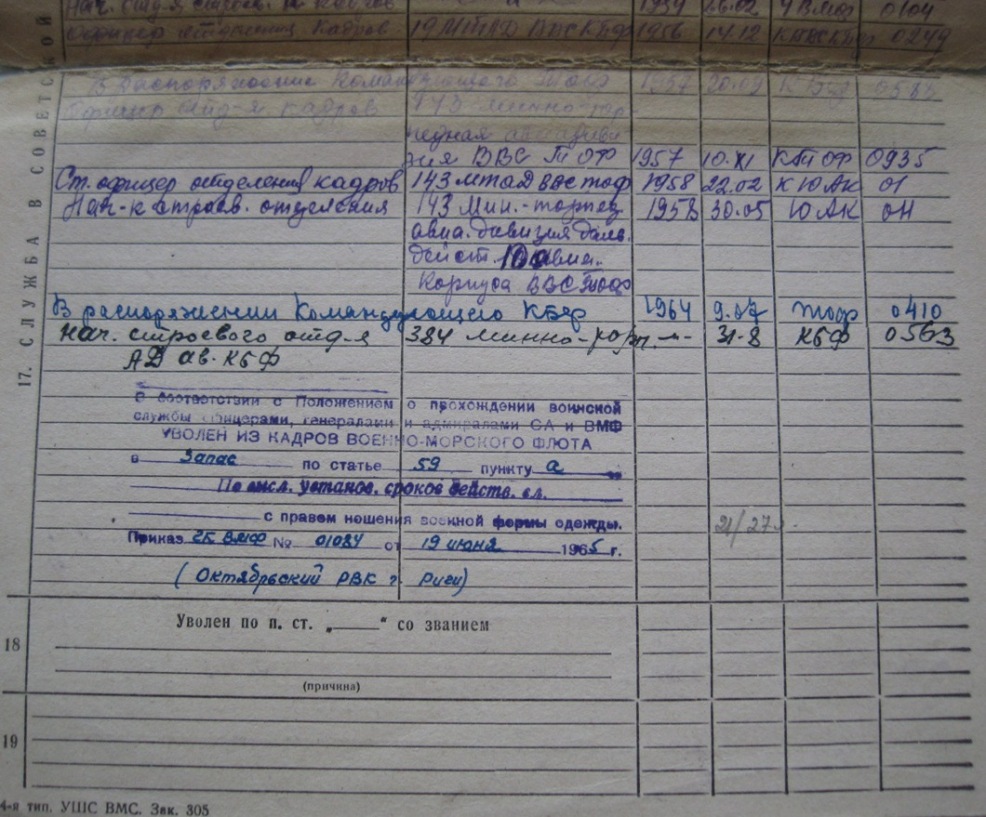 Нач. отд-я строев. и кадров 1954 26.02 4 ВМФ 0104
Офицер отделения кадров 19 МТАД ВВС КБФ 1956 14.12 КВВСКБФ 0249
В распоряжение Командующего ТОФ 1957 20.09 КБФ
Офицер отд-я кадров 143 минно-тор-
педная авиадиви
зия ВВС ТОФ 1957 10.XI КТОФ 0935
Ст. офицер отделения кадров 143 мтад ввс тоф 1958 22.02 КЮАК 01
Нач-к строев. отделения 143 Мин.-торпед 1958 30.05 ЮАК 0Н
авиа. дивизия даль.
дейст. 10 авиа.
Корпуса ВВС ТОФ
В распоряжении Командующего КБФ 1964 9.07 ТОФ 0410
Нач. строевого отд-я 384 минно-торп. -"- 31-8 КБФ 0563
АД ав. КБФ
17. СЛУЖБА В СОВЕТСКОЙ
В соответствии с Положением о прохождении воинской
службы офицерами, генералами и адмиралами СА и ВМФ
УВОЛЕН ИЗ КАДРОВ ВОЕННО-МОРСКОГО ФЛОТА
в Запас по статье 59 пункту а
По высл. установ. сроков действ. сл.
с правом ношения военной формы одежды. 21/27
Приказ ГК ВМФ № 01084 от 19 июня 1965 г.
(Октябрьский РВК г. Риги)
18 Уволен по п. ст. „ “ со званием
(причина)
19
4-я тип. УШС ВМС. Зак. 305